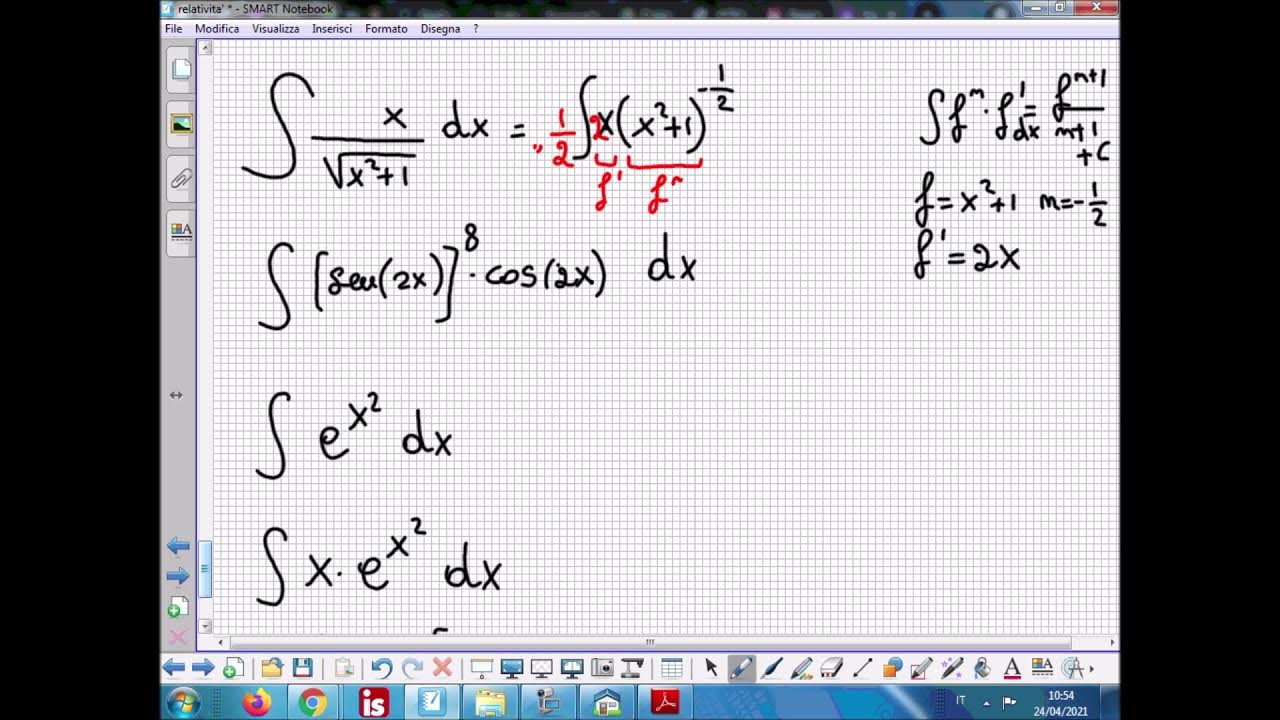 relativita' * - SMART Notebook
File Modifica Visualizza Inserisci Formato Disegna ?
∫ x/√(x²+1) dx = · 1/2 ∫ 2x(x²+1)^(-1/2)
f' fⁿ
∫ fⁿ · f' dx = fⁿ⁺¹/(n+1) + C
f = x²+1 n = -1/2
f' = 2x
∫ [sen(2x)]⁸ · cos(2x) dx
∫ e^(x²) dx
∫ x · e^(x²) dx
IT
10:54
24/04/2021